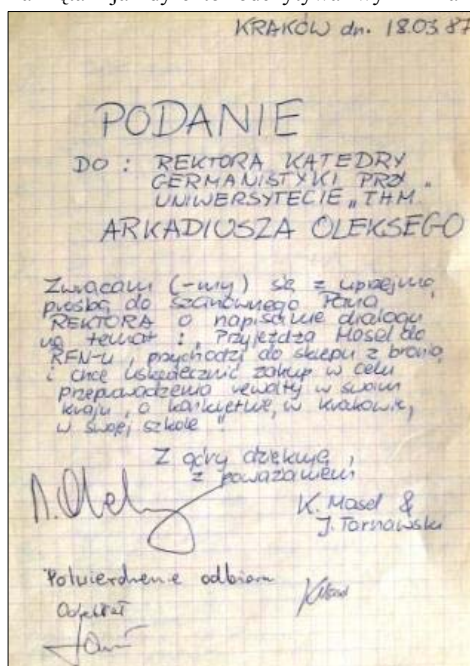 KRAKÓW dn. 18.03.87
PODANIE
DO : REKTORA KATEDRY
GERMANISTYKI PRZY
UNIWERSYTECIE „THM
ARKADIUSZA OLEKSEGO
Zwracam (-my) się z uprzejmą
prośbą do szanownego Pana
REKTORA o napisanie dialogu
na temat : „Przyjeżdża Mosel do
RFN-u, przychodzi do sklepu z bronią
i chce uskutecznić zakup w celu
przeprowadzenia rewolty w swoim
kraju, a konkretnie, w Krakowie,
w swojej szkole".
Z góry dziękują,
z poważaniem
K. Mosel &
J. Tarnawski
Potwierdzenie odbioru
Odebrał